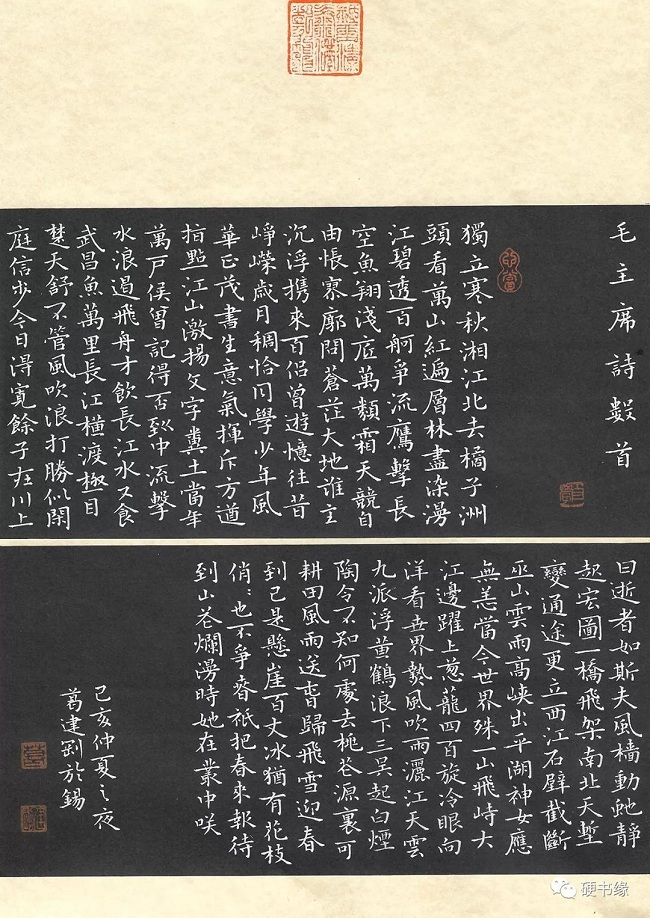 毛主席詩數首
獨立寒秋湘江北去橘子洲
頭看萬山紅遍層林盡染漫
江碧透百舸爭流鷹擊長
空魚翔淺底萬類霜天競自
由悵寥廓問蒼茫大地誰主
沉浮携來百侶曾遊憶往昔
崢嶸歲月稠恰同學少年風
華正茂書生意氣揮斥方遒
指點江山激揚文字糞土當年
萬戶侯曾記得否到中流擊
水浪遏飛舟才飲長江水又食
武昌魚萬里長江橫渡極目
楚天舒不管風吹浪打勝似閑
庭信步今日得寬餘子在川上
曰逝者如斯夫風檣動虵靜
起宏圖一橋飛架南北天塹
變通途更立西江石壁截斷
巫山雲雨高峽出平湖神女應
無恙當今世界殊一山飛峙大
江邊躍上蔥蘢四百旋冷眼向
洋看世界熱風吹雨灑江天雲
九派浮黃鶴浪下三吳起白煙
陶令不知何處去桃花源裏可
耕田風雨送春歸飛雪迎春
到已是懸崖百丈冰猶有花枝
俏〻也不爭春祇把春來報待
到山花爛漫時她在叢中咲
己亥仲夏之夜
葛建於錫
硬书缘